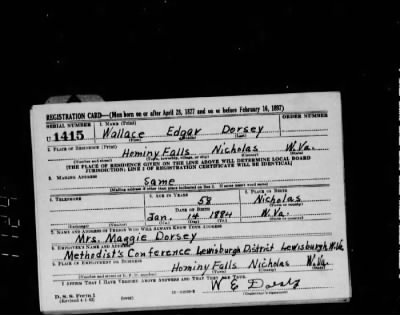 REGISTRATION CARD—(Men born on or after April 28, 1877 and on or before February 16, 1897)
SERIAL NUMBER 1. NAME (Print) ORDER NUMBER
U 1415 Wallace Edgar Dorsey
(First) (Middle) (Last)
2. PLACE OF RESIDENCE (Print)
Hominy Falls Nicholas W.Va.
(Number and street) (Town, township, village, or city) (County) (State)
[THE PLACE OF RESIDENCE GIVEN ON THE LINE ABOVE WILL DETERMINE LOCAL BOARD
JURISDICTION; LINE 2 OF REGISTRATION CERTIFICATE WILL BE IDENTICAL]
3. MAILING ADDRESS
Same
[Mailing address if other than place indicated on line 2. If same insert word same]
4. TELEPHONE 5. AGE IN YEARS 6. PLACE OF BIRTH
58 Nicholas
DATE OF BIRTH (Town or county)
Jan. 14 1884 W.Va.
(Exchange) (Number) (Mo.) (Day) (Yr.) (State or country)
7. NAME AND ADDRESS OF PERSON WHO WILL ALWAYS KNOW YOUR ADDRESS
Mrs. Maggie Dorsey
8. EMPLOYER'S NAME AND ADDRESS
Methodist's Conference Lewisburgh District Lewisburgh W.Va.
9. PLACE OF EMPLOYMENT OR BUSINESS
Hominy Falls Nicholas W.Va.
(Number and street or R. F. D. number) (Town) (County) (State)
I AFFIRM THAT I HAVE VERIFIED ABOVE ANSWERS AND THAT THEY ARE TRUE.
D. S. S. Form 1
(Revised 4-1-42) (over)
W E